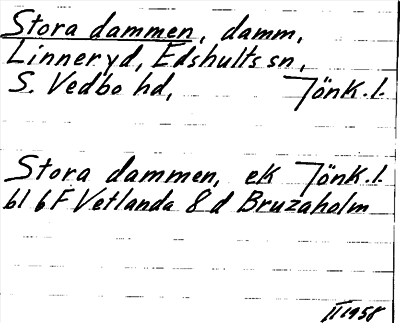 Stora dammen, damm,
Linneryd, Edshults sn,
S. Vedbo hd, Jönk. l.
Stora dammen, ek Jönk. l.
bl 6F Vetlanda 8 d Bruzaholm
II 1958